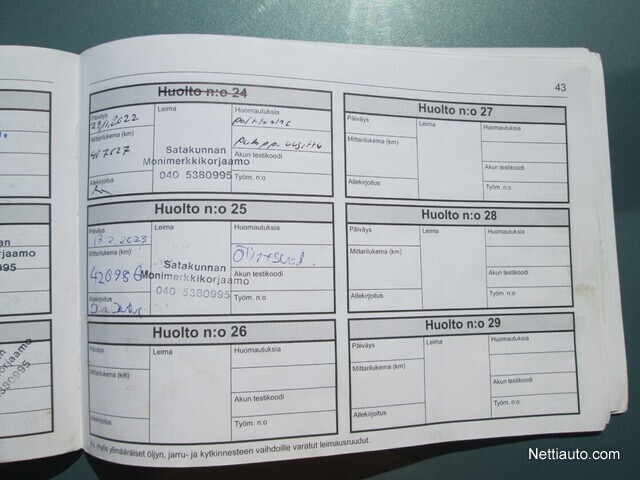 43
Huolto n:o 24
Päiväys
29.11.2022
Mittarilukema (km)
Allekirjoitus
Leima
Satakunnan
Monimerkkikorjaamo
040 5380995
Huomautuksia
Akun testikoodi
Työm. n:o
Huolto n:o 25
Päiväys
17.2.2023
Mittarilukema (km)
420986
Allekirjoitus
Leima
Satakunnan
Monimerkkikorjaamo
040 5380995
Huomautuksia
Akun testikoodi
Työm. n:o
Huolto n:o 26
Päiväys
Mittarilukema (km)
Allekirjoitus
Leima
Huomautuksia
Akun testikoodi
Työm. n:o
Huolto n:o 27
Päiväys
Mittarilukema (km)
Allekirjoitus
Leima
Huomautuksia
Akun testikoodi
Työm. n:o
Huolto n:o 28
Päiväys
Mittarilukema (km)
Allekirjoitus
Leima
Huomautuksia
Akun testikoodi
Työm. n:o
Huolto n:o 29
Päiväys
Mittarilukema (km)
Allekirjoitus
Leima
Huomautuksia
Akun testikoodi
Työm. n:o
myös ylimääräiset öljyn, jarru- ja kytkinnesteen vaihdoille varatut leimausruudut.
Nettiauto.com